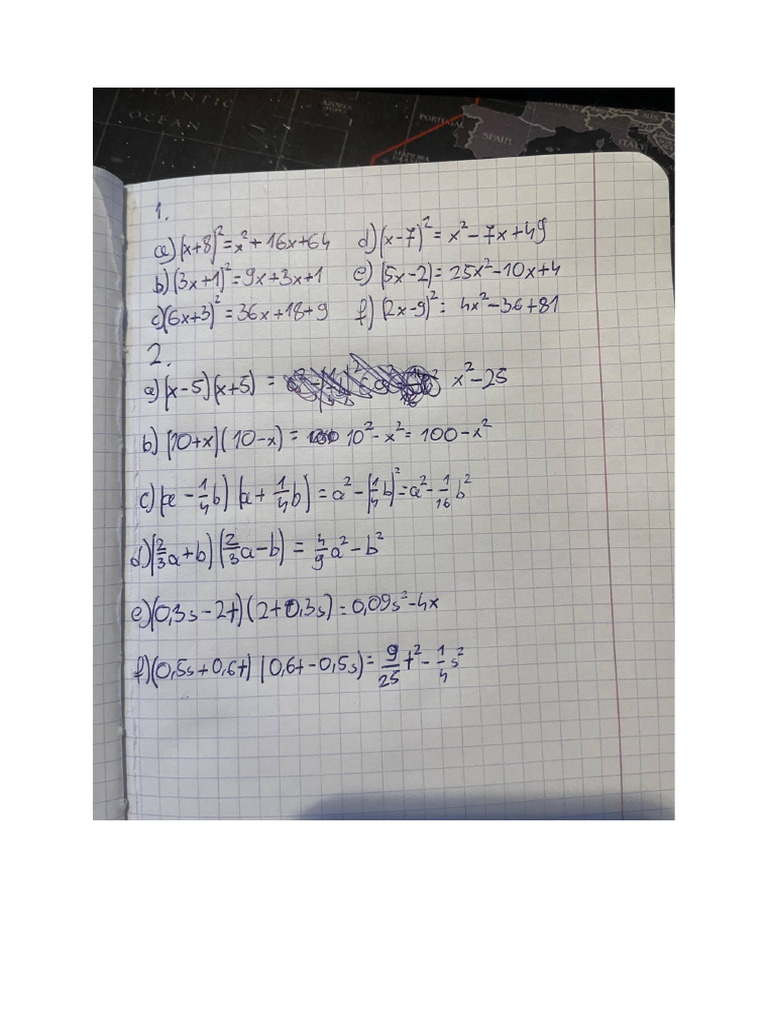 ATLANTIC
OCEAN
PORTUGAL
SPAIN
ITALY
1.
a) (x+8)² = x² + 16x + 64 d) (x-7)² = x² - 7x + 49
b) (3x+1)² = 9x + 3x + 1 e) (5x-2) = 25x² - 10x + 4
c) (6x+3)² = 36x + 18 + 9 f) (2x-9)² = 4x² - 36 + 81
2.
a) (x-5)(x+5) = x² - 25
b) (10+x)(10-x) = 10² - x² = 100 - x²
c) (a - 1/4b) (a + 1/4b) = a² - (1/4b)² = a² - 1/16 b²
d) (2/3a + b) (2/3a - b) = 4/9a² - b²
e) (0,3s - 2t)(2 + 0,3s) = 0,09s² - 4x
f) (0,5s + 0,6t) (0,6t - 0,5s) = 9/25 t² - 1/4 s²